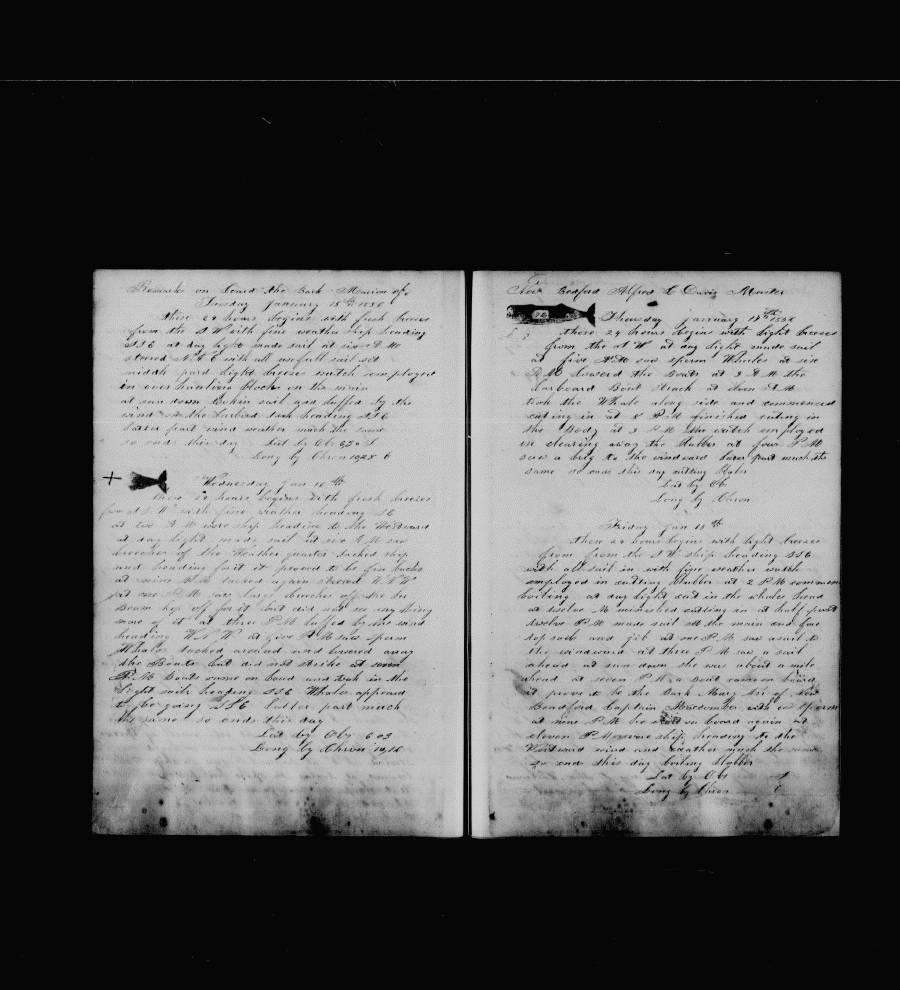 Remarks on board the Bark Marion of
Tuesday January 15th
these 24 hours begins with fresh breezes
from the SW with fine weather ship heading
SSE at day light made sail at six AM
steered with all usefull sail set
middle part light breezes watch employed
in over hauling blocks on the main
at sun down taken sail and luffed by the
wind on the larbord tack heading SSE
later part wind weather much the same
so end this day Lat by Obs S
Long by Chron E
Wednesday Jan 16th
these 24 hours begins with fresh breezes
from SW with fine weather heading SE
at two AM wore ship heading to the Westward
at day light made sail at six AM saw
breeches of the Weather quarter tacked ship
and heading for it proved to be fin backs
at nine AM tacked again steered WNW
at one PM saw large breeches off the lee
Beam kep off for it but did not see any thing
more of it at three PM luffed by the wind
heading WNW at five PM saw sperm
Whales tacked around and lowered away
the Boats but did not strike at seven
PM Boats came on board and took in the
light sails heading SSE Whales appeared
to be going SSE latter part much
the same so ends this day
Lat by Obs
Long by Chron
New Bedford Alfred C Davis Master
Thursday January 17th
these 24 hours begins with light breezes
from the SW at day light made sail
at five AM saw sperm Whales at six
AM lowered the Boats at 9 AM the
larboard Boat struck at eleven AM
took the Whale along side and commenced
cuting in at PM finished cuting in
the Body at 3 PM the watch employed
in clearing away the blubber at four PM
saw a brig to the windward later part much the
same so ends this day cutting blubber
Lat by Ob
Long by Chron
Friday Jan 18th
these 24 hours begins with light breezes
from from the SW ship heading SSE
with all sail in with fine weather watch
employed in cutting blubber at 2 PM commenced
boiling at day light cut in the whales head
at twelve M finished cutting in at half past
twelve PM made sail set the main and fore
top sails and jib at one PM saw a sail to
the windward at three PM saw a sail
ahead at sun down she was about a mile
ahead at seven PM a boat came on board
it prove to be the Bark Mary of New
Beadford Captain with Sperm
at nine PM he went on board again at
eleven PM wore ship heading to the
Westward wind and weather much the same
so ends this day boiling blubber
Lat by Obs S
Long by Chron E